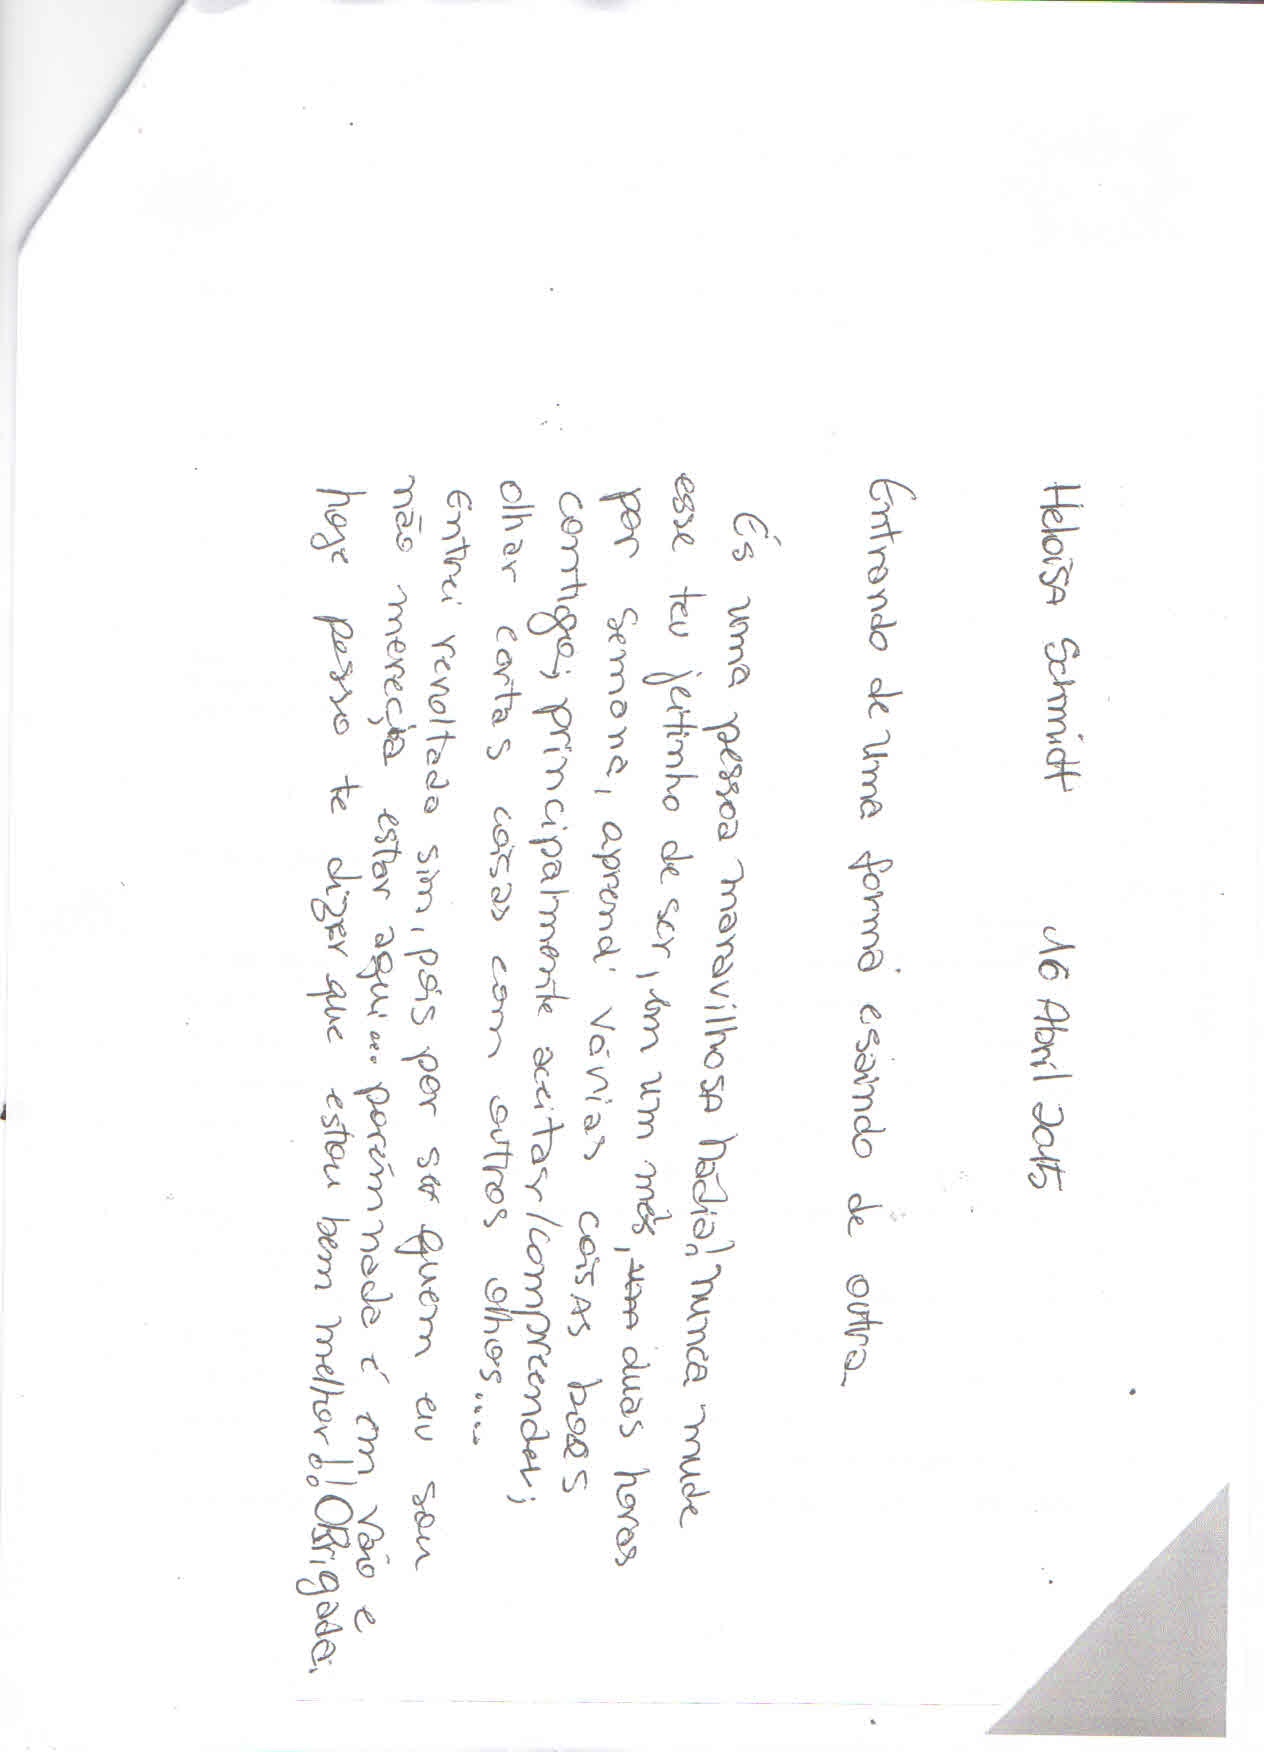 Heloisa Schmidt 16 Abril 2015
Entrando de uma forma e saindo de outra
És uma pessoa maravilhosa Nádia! Nunca mude
esse teu jeitinho de ser, em um mês, duas horas
por semana, aprendi várias coisas boas
contigo; principalmente aceitasr/compreender;
olhar certas coisas com outros olhos....
Entrei revoltada sim, pois por ser quem eu sou
não mereçia estar aqui... porém nada é em vão e
hoje posso te dizer que estou bem melhor!! OBrigada.